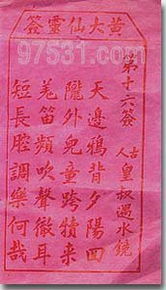 黃大仙靈簽
97531.com
第十六簽
古人
皇叔過水鏡
天邊鴉背夕陽回
隴外兒童跨犢来
羌笛頻吹聲徹耳
短長腔調樂何哉